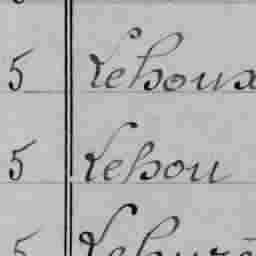 5 Lehoux
5 Lehou
5